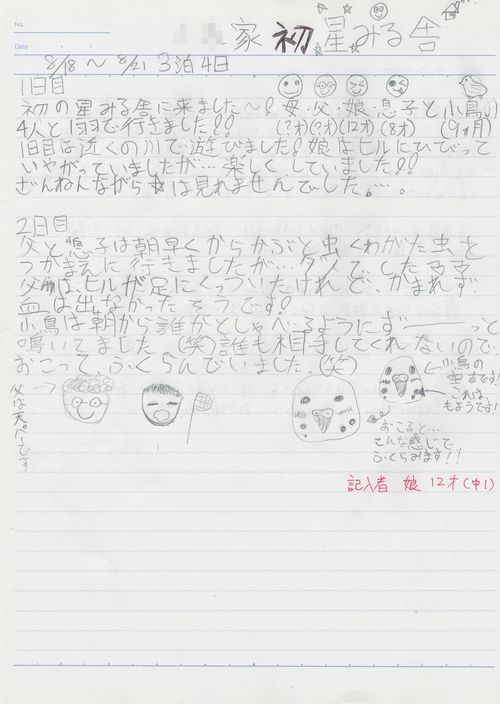 No.
Date
家 初 星みる舎
8/18 ~ 8/21 3泊4日
1日目
初の星みる舎に来ました~! 母・父・娘・息子と小鳥の
4人と1羽で行きました!! (?才)(?才)(12才)(8才) (9ヵ月)
1日目は近くの川で遊びました!娘はヒルにひびって
いやがっていましたが…楽しくしていました!!
ざんねんながら☆は見れませんでした。…。
2日目
父と息子は朝早くからかぶと虫くわがた虫を
つかまえに行きましたが…ダメでした
父は、ヒルが足にくっついたけれど…かまれず
血は出なかったそうです!
小鳥は朝から誰かとしゃべるようにずーーーっと
鳴いてました。(笑)誰も相手してくれないので
おこって、ふくらんでいました。(笑)
父は天パーです
小鳥の
これは、
もようです!
おこると…
こんな感じで
ふくらみます!!
記入者 娘 12才(中1)